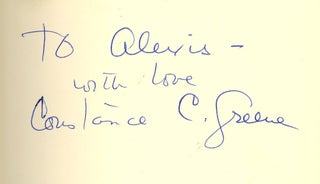 To Alexis -
with love
Constance C. Greene